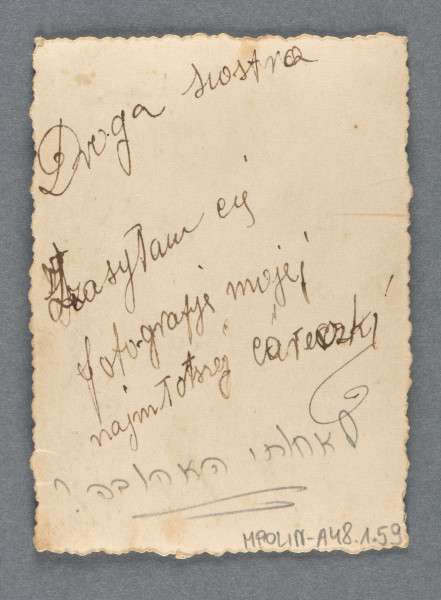 Droga siostra
cię
fotografje mojej
najmłotszej córeczki
אחותי האהובה
MPOLIN-A48.1.59